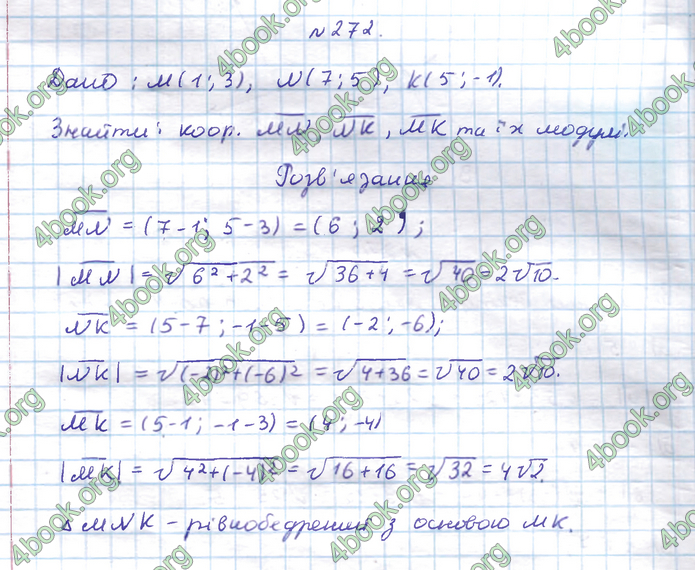 №272.
Дано: M(1; 3), N(7; 5), K(5; -1).
Знайти: коор. MN, NK, MK та їх модулі.
Розв'язання
MN = (7-1; 5-3) = (6; 2);
|MN| = √6²+2² = √36+4 = √40 = 2√10.
NK = (5-7; -1-5) = (-2; -6);
|NK| = √(-2)²+(-6)² = √4+36 = √40 = 2√10.
MK = (5-1; -1-3) = (4; -4)
|MK| = √4²+(-4)² = √16+16 = √32 = 4√2.
∆ MNK - рівнобедрений з основою MK.
4book.org